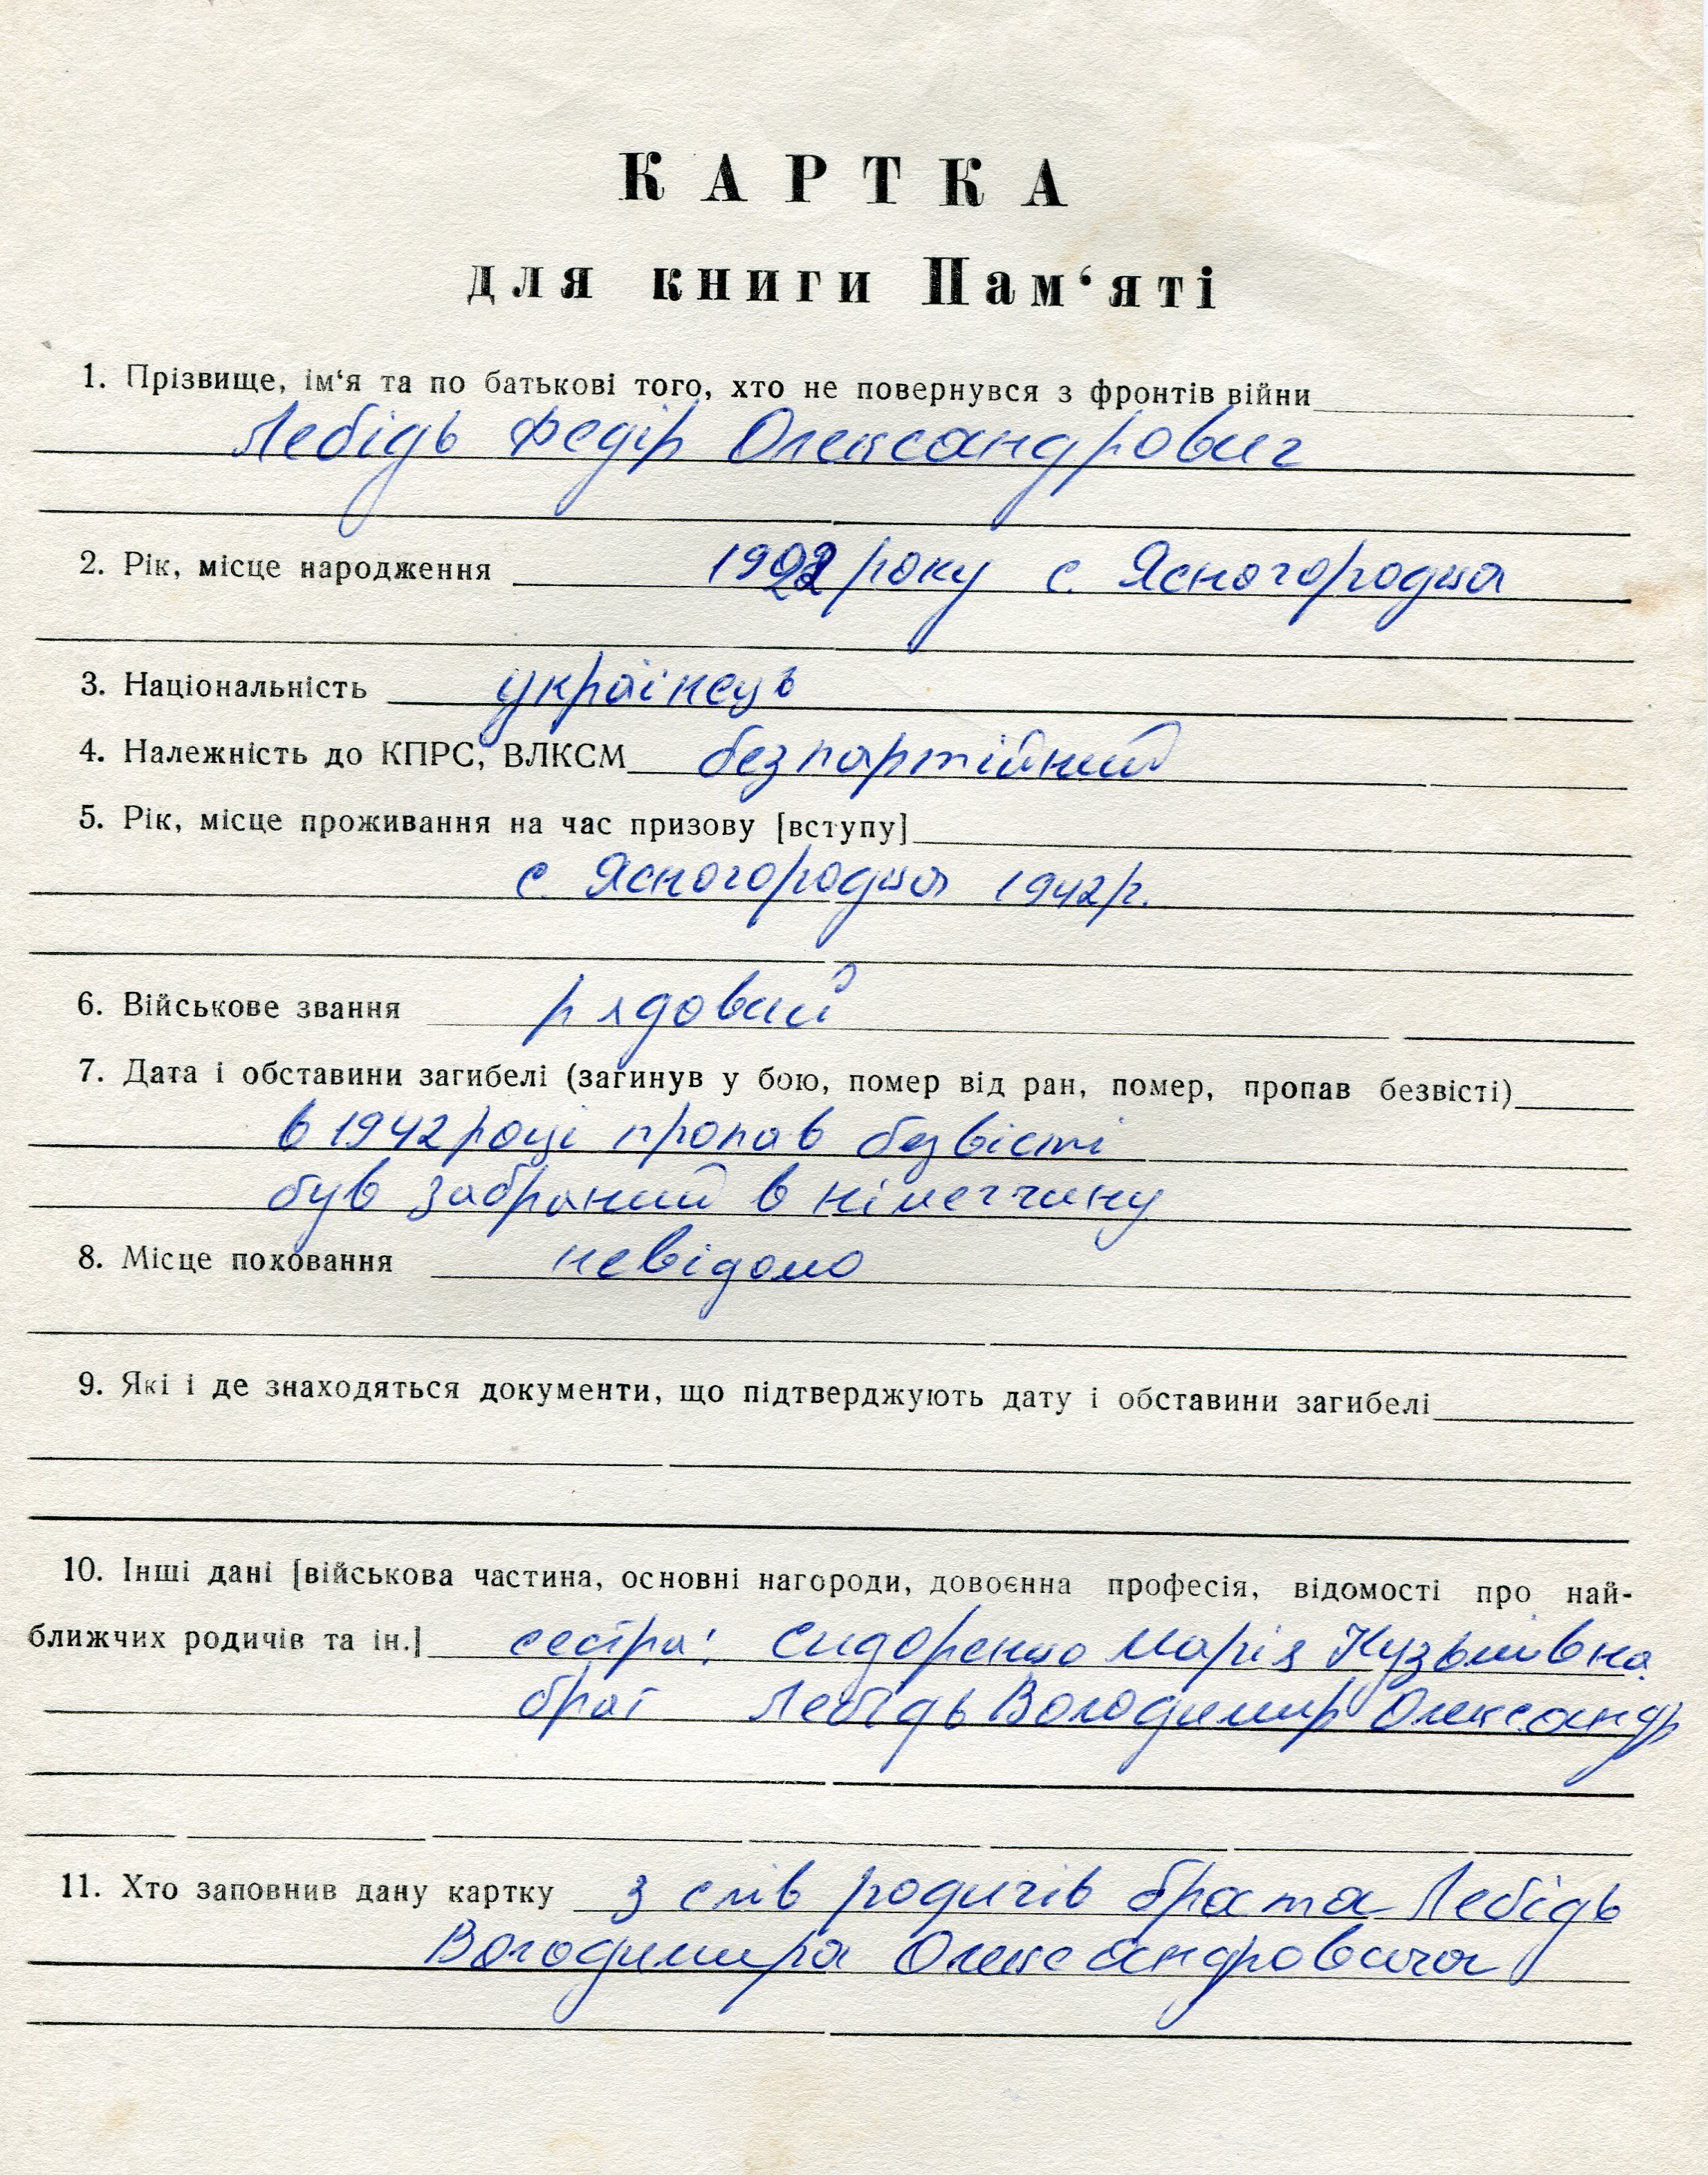 КАРТКА
для книги Пам‘яті
1. Прізвище, ім‘я та по батькові того, хто не повернувся з фронтів війни
Лебідь Федір Олександрович
2. Рік, місце народження 1922 року с. Ясногородка
3. Національність українець
4. Належність до КПРС, ВЛКСМ безпартійний
5. Рік, місце проживання на час призову [вступу]
с. Ясногородка 1942 р.
6. Військове звання рядовий
7. Дата і обставини загибелі (загинув у бою, помер від ран, помер, пропав безвісті)
в 1942 році пропав безвісті
був забраний в німеччину
8. Місце поховання невідомо
9. Які і де знаходяться документи, що підтверджують дату і обставини загибелі
10. Інші дані [військова частина, основні нагороди, довоєнна професія, відомості про най-
ближчих родичів та ін.] сестра: Сидоренко Марія Кузьмівна
брат Лебідь Володимир Олександр
11. Хто заповнив дану картку з слів родичів брата Лебідь
Володимира Олександровича